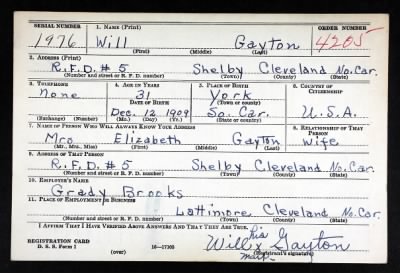 SERIAL NUMBER 1. NAME (Print) ORDER NUMBER
1976 Will Gayton 4205
(First) (Middle) (Last)
2. ADDRESS (Print)
R.F.D. # 5 Shelby Cleveland No. Car.
(Number and street or R. F. D. number) (Town) (County) (State)
3. TELEPHONE 4. AGE IN YEARS 5. PLACE OF BIRTH 6. COUNTRY OF CITIZENSHIP
None 31 York
DATE OF BIRTH (Town or county)
Dec. 12 1909 So. Car. U.S.A.
(Exchange) (Number) (Mo.) (Day) (Yr.) (State or country)
7. NAME OF PERSON WHO WILL ALWAYS KNOW YOUR ADDRESS 8. RELATIONSHIP OF THAT PERSON
Mrs Elizabeth Gayton Wife
(Mr., Mrs., Miss) (First) (Middle) (Last)
9. ADDRESS OF THAT PERSON
R.F.D. # 5 Shelby Cleveland No. Car.
(Number and street or R. F. D. number) (Town) (County) (State)
10. EMPLOYER'S NAME
Grady Brooks
11. PLACE OF EMPLOYMENT OR BUSINESS
Lattimore Cleveland No. Car.
(Number and street or R. F. D. number) (Town) (County) (State)
I AFFIRM THAT I HAVE VERIFIED ABOVE ANSWERS AND THAT THEY ARE TRUE.
his
REGISTRATION CARD Will x Gayton
D. S. S. Form 1 (over) 16—17105 mark (Registrant's signature)